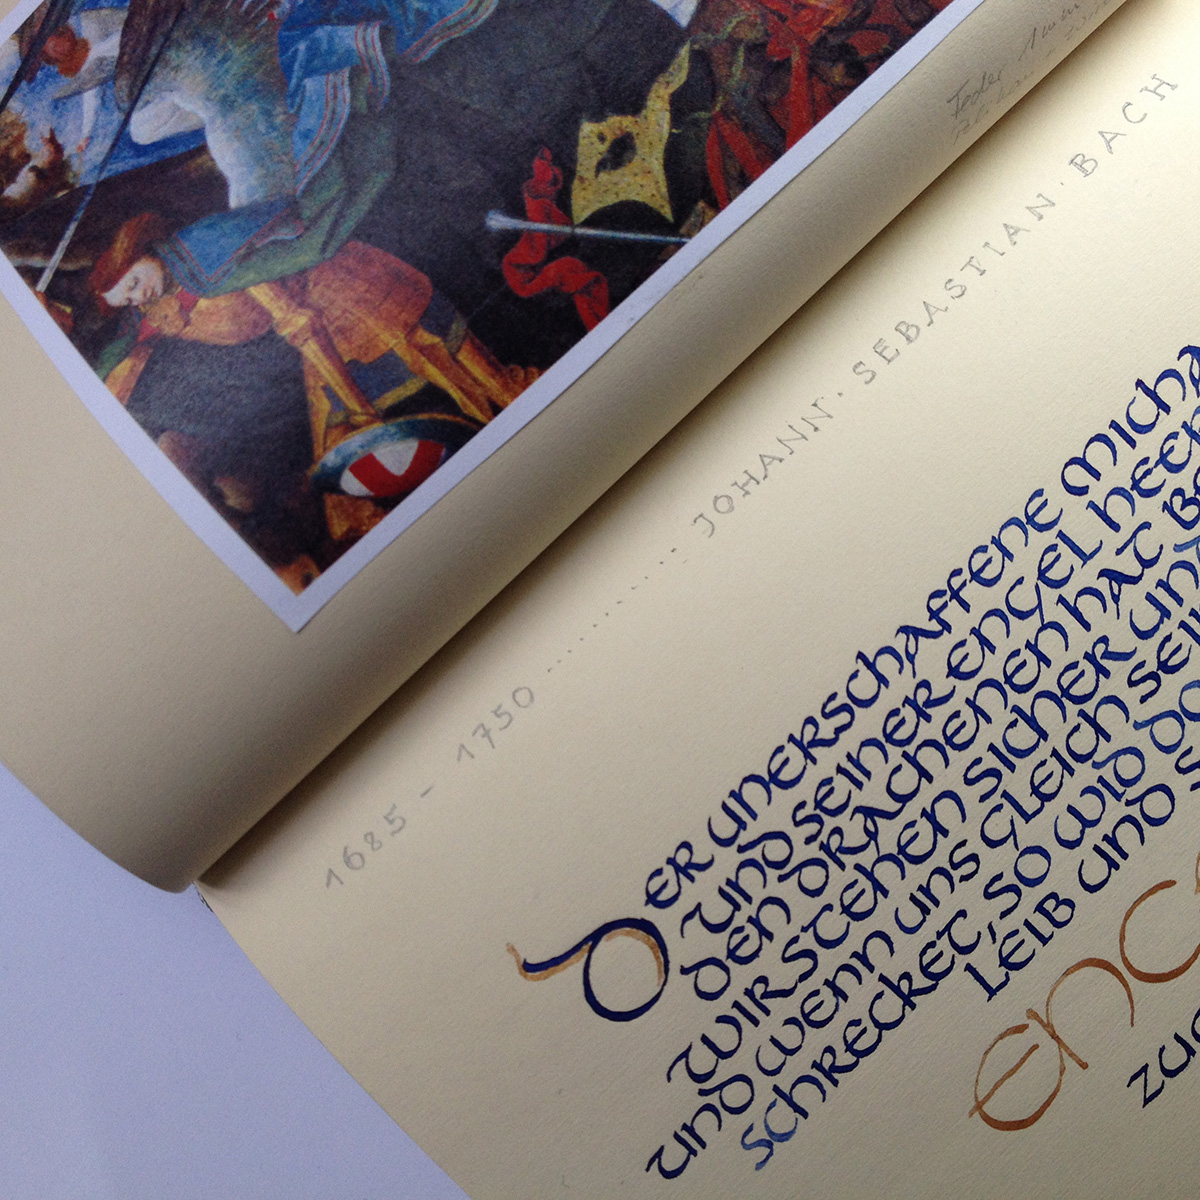 1685 - 1750 ............... JOHANN · SEBASTIAN · BACH
DER UNERSCHAFFENE MICHA
UND SEINER ENGEL HEER
DEN DRACHENEN HAT BE
WIR STEHEN SICHER UND
UND WENN UNS GLEICH SEIN
SCHRECKET, SO WID DO
LEIB UND S
ENG
ZU